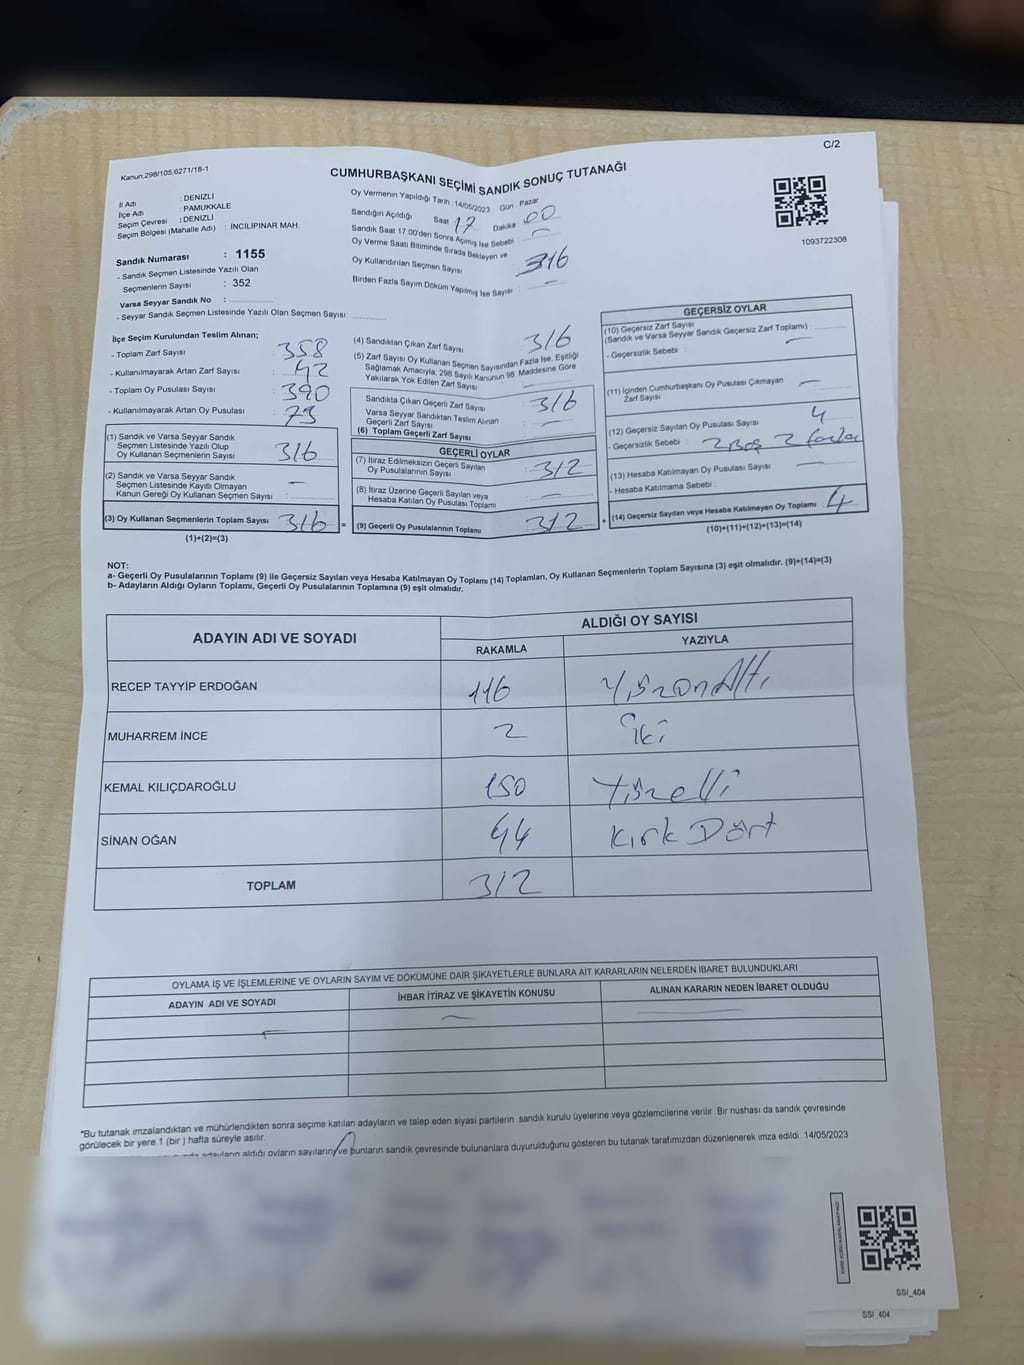 C/2
Kanun:298/105,6271/18-1
CUMHURBAŞKANI SEÇİMİ SANDIK SONUÇ TUTANAĞI
İl Adı : DENİZLİ
İlçe Adı : PAMUKKALE
Seçim Çevresi : DENİZLİ
Seçim Bölgesi (Mahalle Adı) : İNCİLİPINAR MAH.
Sandık Numarası : 1155
- Sandık Seçmen Listesinde Yazılı Olan
Seçmenlerin Sayısı : 352
Varsa Seyyar Sandık No :
- Seyyar Sandık Seçmen Listesinde Yazılı Olan Seçmen Sayısı:
Oy Vermenin Yapıldığı Tarih :14/05/2023 Gün : Pazar
Sandığın Açıldığı Saat 17 Dakika : 00
Sandık Saat 17:00'den Sonra Açımış İse Sebebi : -
Oy Verme Saati Bitiminde Sırada Bekleyen ve
Oy Kullandırılan Seçmen Sayısı 316
Birden Fazla Sayım Döküm Yapılmış İse Sayısı : -
1093722308
İlçe Seçim Kurulundan Teslim Alınan;
- Toplam Zarf Sayısı : 358
- Kullanılmayarak Artan Zarf Sayısı : 42
- Toplam Oy Pusulası Sayısı : 390
- Kullanılmayarak Artan Oy Pusulası : 73
(1) Sandık ve Varsa Seyyar Sandık
Seçmen Listesinde Yazılı Olup
Oy Kullanan Seçmenlerin Sayısı : 316
(2) Sandık ve Varsa Seyyar Sandık
Seçmen Listesinde Kayıtlı Olmayan
Kanun Gereği Oy Kullanan Seçmen Sayısı : -
(3) Oy Kullanan Seçmenlerin Toplam Sayısı 316 =
(1)+(2)=(3)
(4) Sandıktan Çıkan Zarf Sayısı : 316
(5) Zarf Sayısı Oy Kullanan Seçmen Sayısından Fazla İse, Eşitliği
Sağlamak Amacıyla; 298 Sayılı Kanunun 98. Maddesine Göre
Yakılarak Yok Edilen Zarf Sayısı : -
Sandıkta Çıkan Geçerli Zarf Sayısı : 316
Varsa Seyyar Sandıktan Teslim Alınan
Geçerli Zarf Sayısı : -
(6) Toplam Geçerli Zarf Sayısı
GEÇERLİ OYLAR
(7) İtiraz Edilmeksizin Geçerli Sayılan
Oy Pusulalarının Sayısı : 312
(8) İtiraz Üzerine Geçerli Sayılan veya
Hesaba Katılan Oy Pusulası Toplamı : -
(9) Geçerli Oy Pusulalarının Toplamı : 312 +
GEÇERSİZ OYLAR
(10) Geçersiz Zarf Sayısı
(Sandık ve Varsa Seyyar Sandık Geçersiz Zarf Toplamı) :
- Geçersizlik Sebebi : -
(11) İçinden Cumhurbaşkanı Oy Pusulası Çıkmayan
Zarf Sayısı : -
(12) Geçersiz Sayılan Oy Pusulası Sayısı : 4
- Geçersizlik Sebebi : 2 Boş 2 fazla
(13) Hesaba Katılmayan Oy Pusulası Sayısı : -
- Hesaba Katılmama Sebebi :
(14) Geçersiz Sayılan veya Hesaba Katılmayan Oy Toplamı : 4
(10)+(11)+(12)+(13)=(14)
NOT:
a- Geçerli Oy Pusulalarının Toplamı (9) ile Geçersiz Sayılan veya Hesaba Katılmayan Oy Toplamı (14) Toplamları, Oy Kullanan Seçmenlerin Toplam Sayısına (3) eşit olmalıdır. (9)+(14)=(3)
b- Adayların Aldığı Oyların Toplamı, Geçerli Oy Pusulalarının Toplamına (9) eşit olmalıdır.
ADAYIN ADI VE SOYADI ALDIĞI OY SAYISI
RAKAMLA YAZIYLA
RECEP TAYYİP ERDOĞAN 116 YüzonAltı
MUHARREM İNCE 2 iki
KEMAL KILIÇDAROĞLU 150 Yüzelli
SİNAN OĞAN 44 Kırk Dört
TOPLAM 312
OYLAMA İŞ VE İŞLEMLERİNE VE OYLARIN SAYIM VE DÖKÜMÜNE DAİR ŞİKAYETLERLE BUNLARA AİT KARARLARIN NELERDEN İBARET BULUNDUKLARI
ADAYIN ADI VE SOYADI İHBAR İTİRAZ VE ŞİKAYETİN KONUSU ALINAN KARARIN NEDEN İBARET OLDUĞU
*Bu tutanak imzalandıktan ve mühürlendikten sonra seçime katılan adayların ve talep eden siyasi partilerin sandık kurulu üyelerine veya gözlemcilerine verilir. Bir nüshası da sandık çevresinde
görülecek bir yere 1 (bir ) hafta süreyle asılır.
adayların aldığı oyların sayılarını ve bunların sandık çevresinde bulunanlara duyurulduğunu gösteren bu tutanak tarafımızdan düzenlenerek imza edildi. 14/05/2023
SSİ_404
SSİ_404